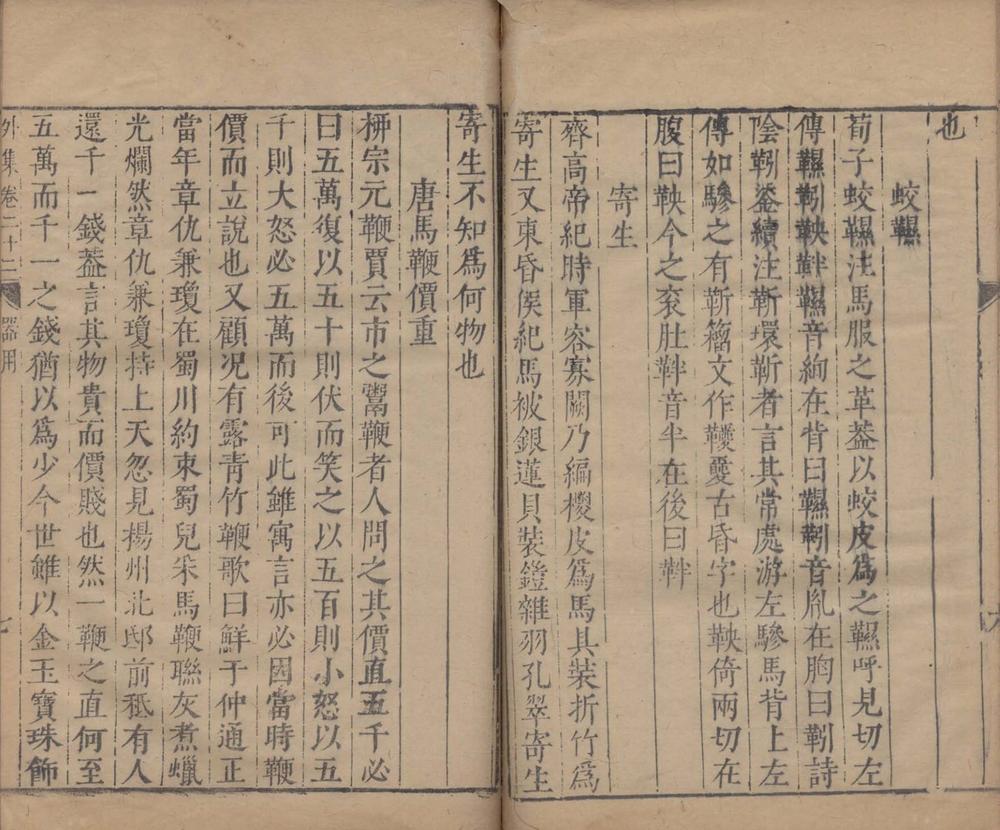 也
蛟韅
荀子蛟韅注馬服之革葢以蛟皮爲之韅呼見切左
傳韅靷鞅靽韅音絢在背曰韅靷音胤在胸曰靷詩
陰靷鋈續注靳環靳者言其常處游左驂馬背上左
傳如驂之有靳籀文作䪊憂古昏字也鞅倚兩切在
腹曰鞅今之衮肚靽音半在後曰靽
寄生
齊高帝紀時軍容寡闕乃編椶皮爲馬具裝折竹爲
寄生又東昏侯紀馬被銀蓮貝裝鎧雜羽孔翠寄生
寄生不知爲何物也
唐馬鞭價重
栁宗元鞭賈云市之鬻鞭者人問之其價直五千必
曰五萬復以五十則伏而笑之以五百則小怒以五
千則大怒必五萬而後可此雖寓言亦必因當時鞭
價而立說也又顧况有露青竹鞭歌曰鮮于仲通正
當年章仇兼瓊在蜀川約束蜀兒采馬鞭聯灰煮蠟
光爛然章仇兼瓊持上天忽見楊州北邸前秪有人
還千一錢葢言其物貴而價賤也然一鞭之直何至
五萬而千一之錢猶以爲少今世雖以金玉寶珠飾
外集卷二十二 器用 七